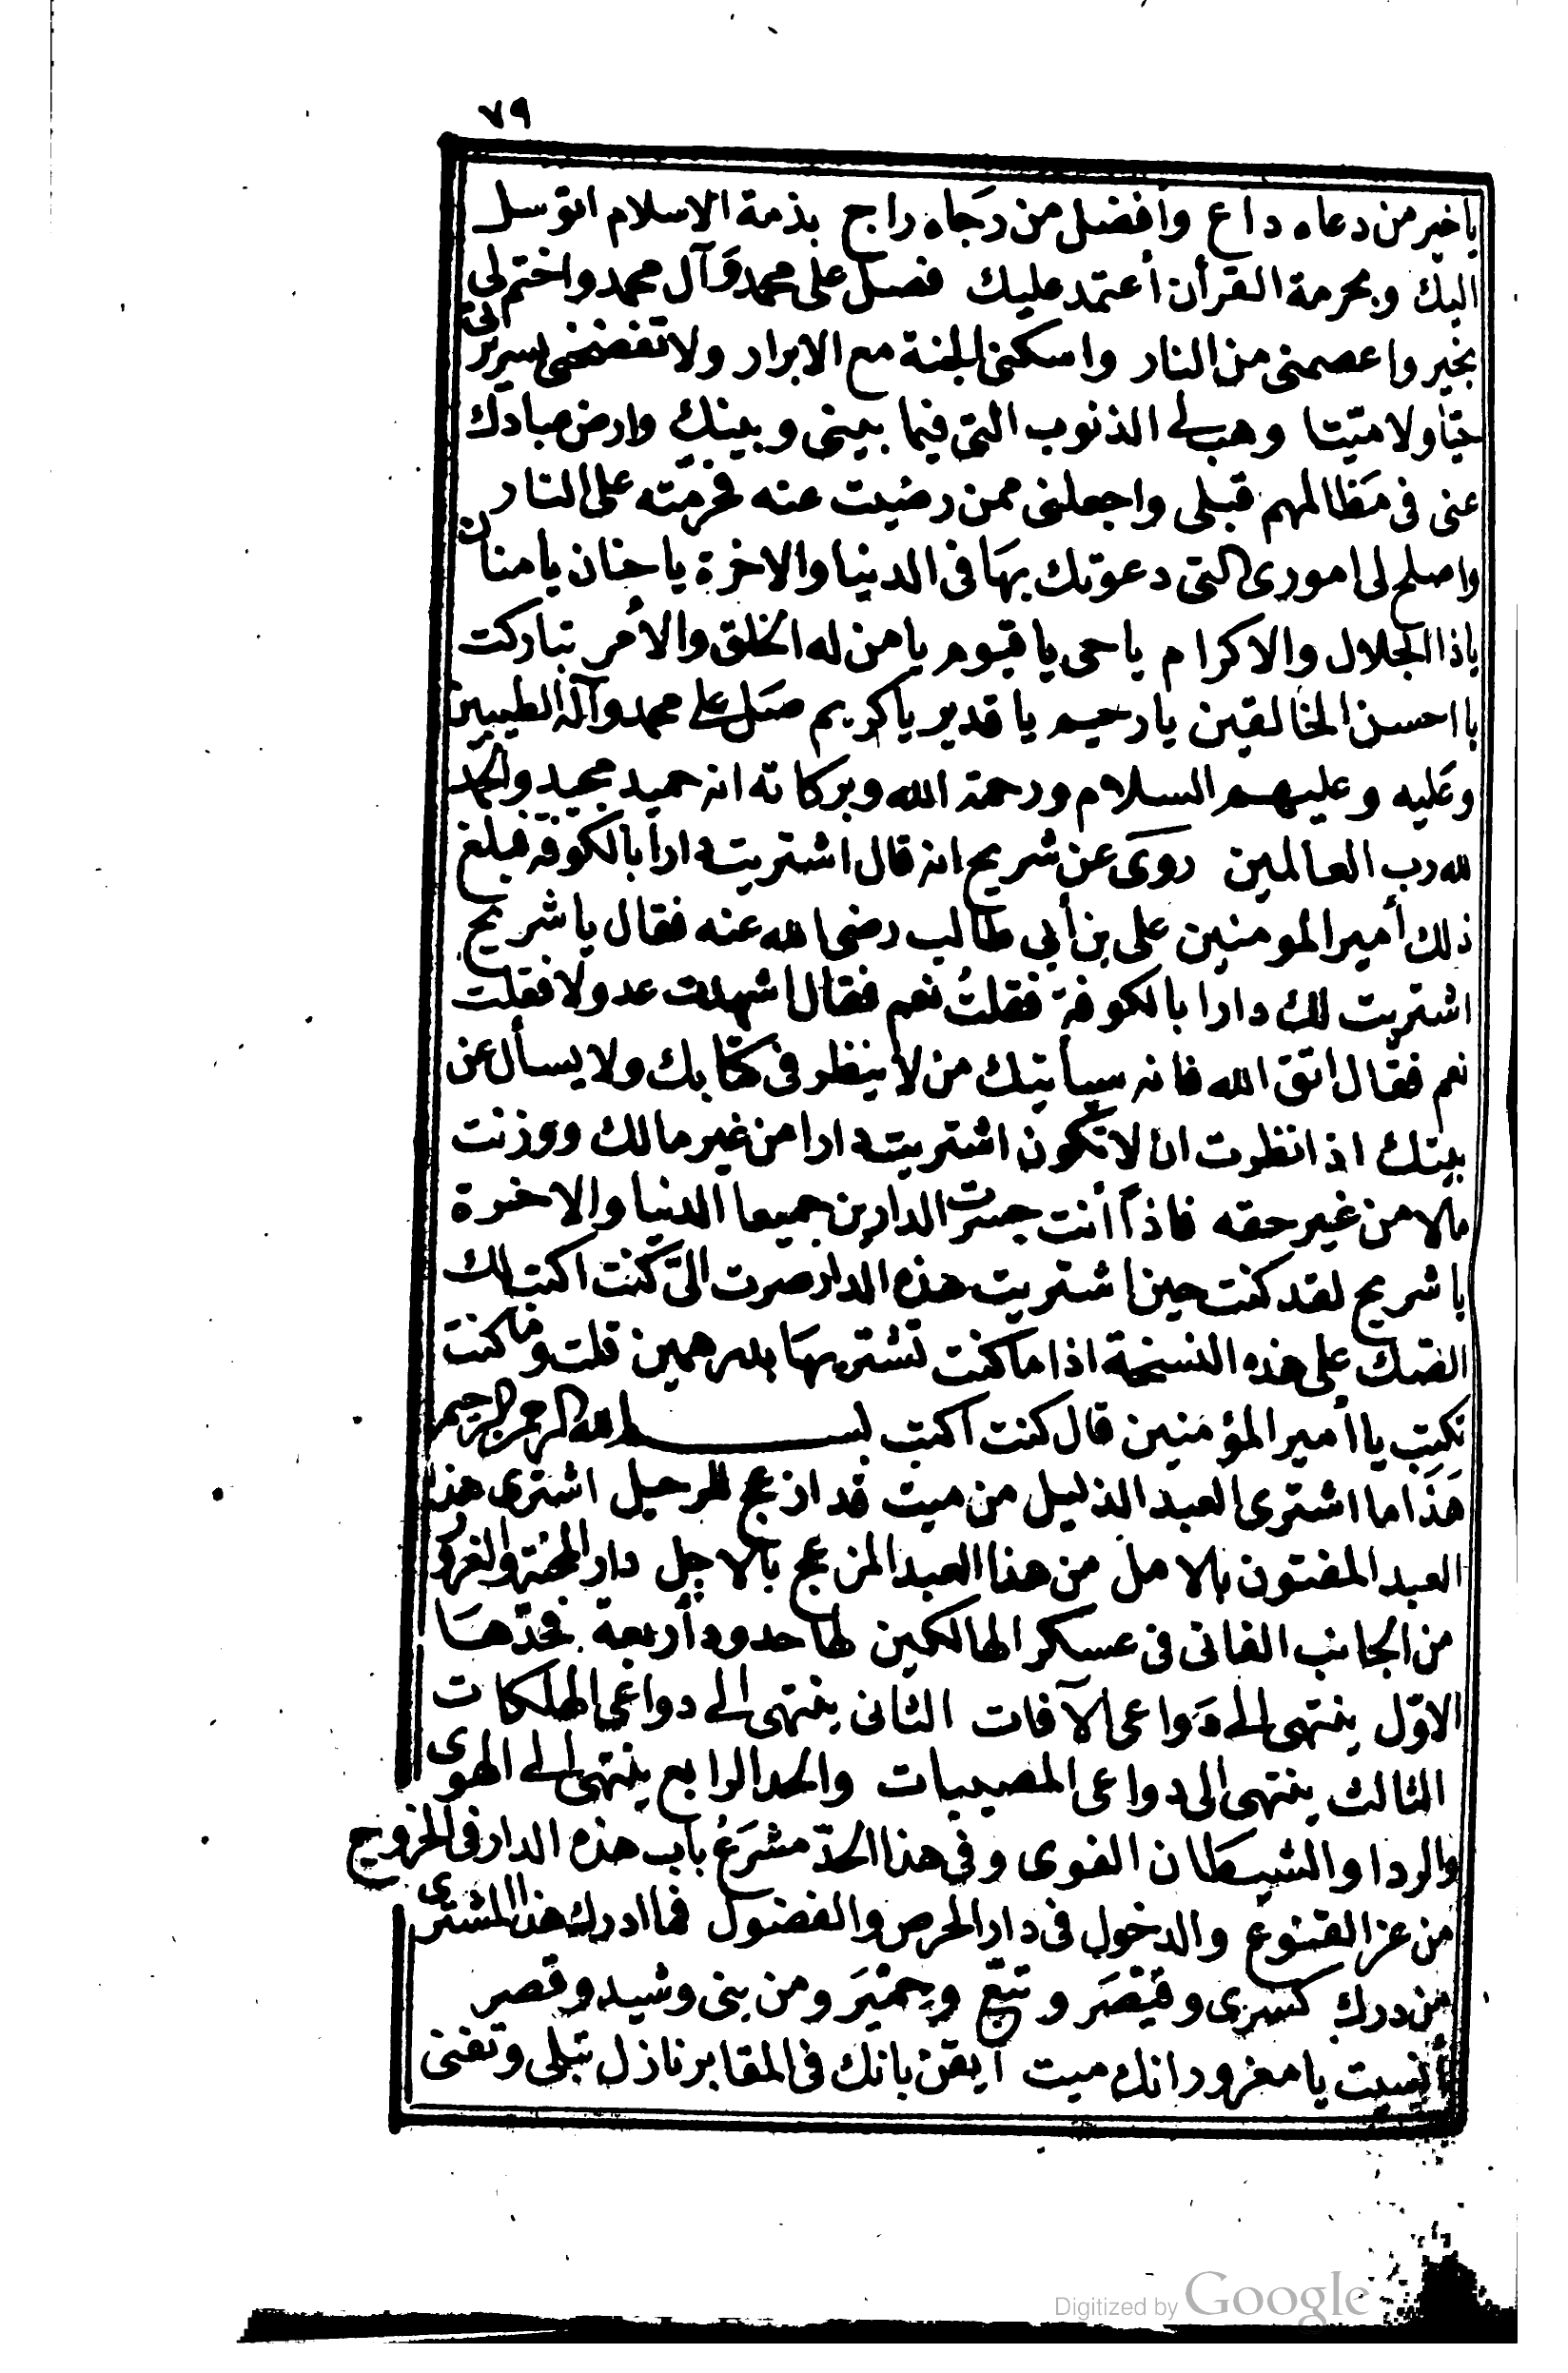 ٧٩
يا خير من دعاه داع وأفضل من رَجاه راج بذمة الاسلام اتوسل
اليك وبحرمة القرأن أعتمد عليك فصل على محمد وَآل محمد واختم لي
بخير واعصمني من النار واسكني الجنة مع الابرار ولا تفضحني بسريرتي
حيّا ولا ميّتا وهب لي الذنوب التي فيما بيني وبينك وارض عبادك
عني في مَظالمهم قبلي واجعلني ممن رضيت عنه فحرمته على النار
واصلح لي اموري التي دعوتك بهَا في الدنيا والاخرة يا حنان يا منان
ياذا الجلال والاكرام يا حي يا قيوم يا من له الخلق والأمر تباركت
يا احسن الخالقين يا رحيم يا قدير يا كريم صَل على محمد وآله الطيبين
وعَليه وعليهم السلام ورحمة الله وبركاته انه حميد مجيد والحمد
لله رب العالمين روىَ عن شريح انه قال اشتريت دارا بالكوفه فبلغ
ذلك أمير المومنين على بن أبي طالب رضى الله عنه فقال يا شريح
اشتريت لك دارا بالكوفة فقلتُ نعم فقال اشهدت عدولا فقلت
نعم فقال اتق الله فانه سيأتيك من لا ينظر في كتابك ولا يسأل عن
بيتك اذ انظرت ان لا تكون اشتريت دارا من غير مالك ووزنت
مالا من غير حقه فاذاً أنت خسرت الدارين جميعا الدنيا والاخرة
يا شريح لقد كنت حين اشتريت هذه الدار صرت الىّ كنت اكتب لك
الصك على هذه النسخة اذا ما كنت تشتريهَا بدرهمين قلت وما كنت
تكتب يا أمير المؤمنين قال كنت اكتب بسم الله الرحمن الرحيم
هَذَا ما اشترى العبد الذليل من ميت قد ازعج للرحيل اشترى هذا
العبد المفتون بالامل من هذا العبد المزعج بالاجل دار المحنة والغرور
من الجانب الفاني في عسكر الهالكين لها حدود أربعة فحدّهَا
الاوّل ينتهي الى دَواعي الآفات الثاني ينتهي الى دواعي الهلكات
الثالث ينتهي الى دواعي المصيبات والحد الرابع ينتهي الى الهوى
والردا والشيطان الغوى وفي هذا الحدّ مشرَعُ باب هذه الدار في الخروج
من عز القنوع والدخول في دار الحرص والفضول فما ادرك هذا المشترى
من درك كسرى وقيصَر وتبّع وحِميَر ومن بنى وشيد وقصر
أنسيت يا مغرور انك ميت أيقن بانك في المقابر نازل تبلى وتفنى
Digitized by Google